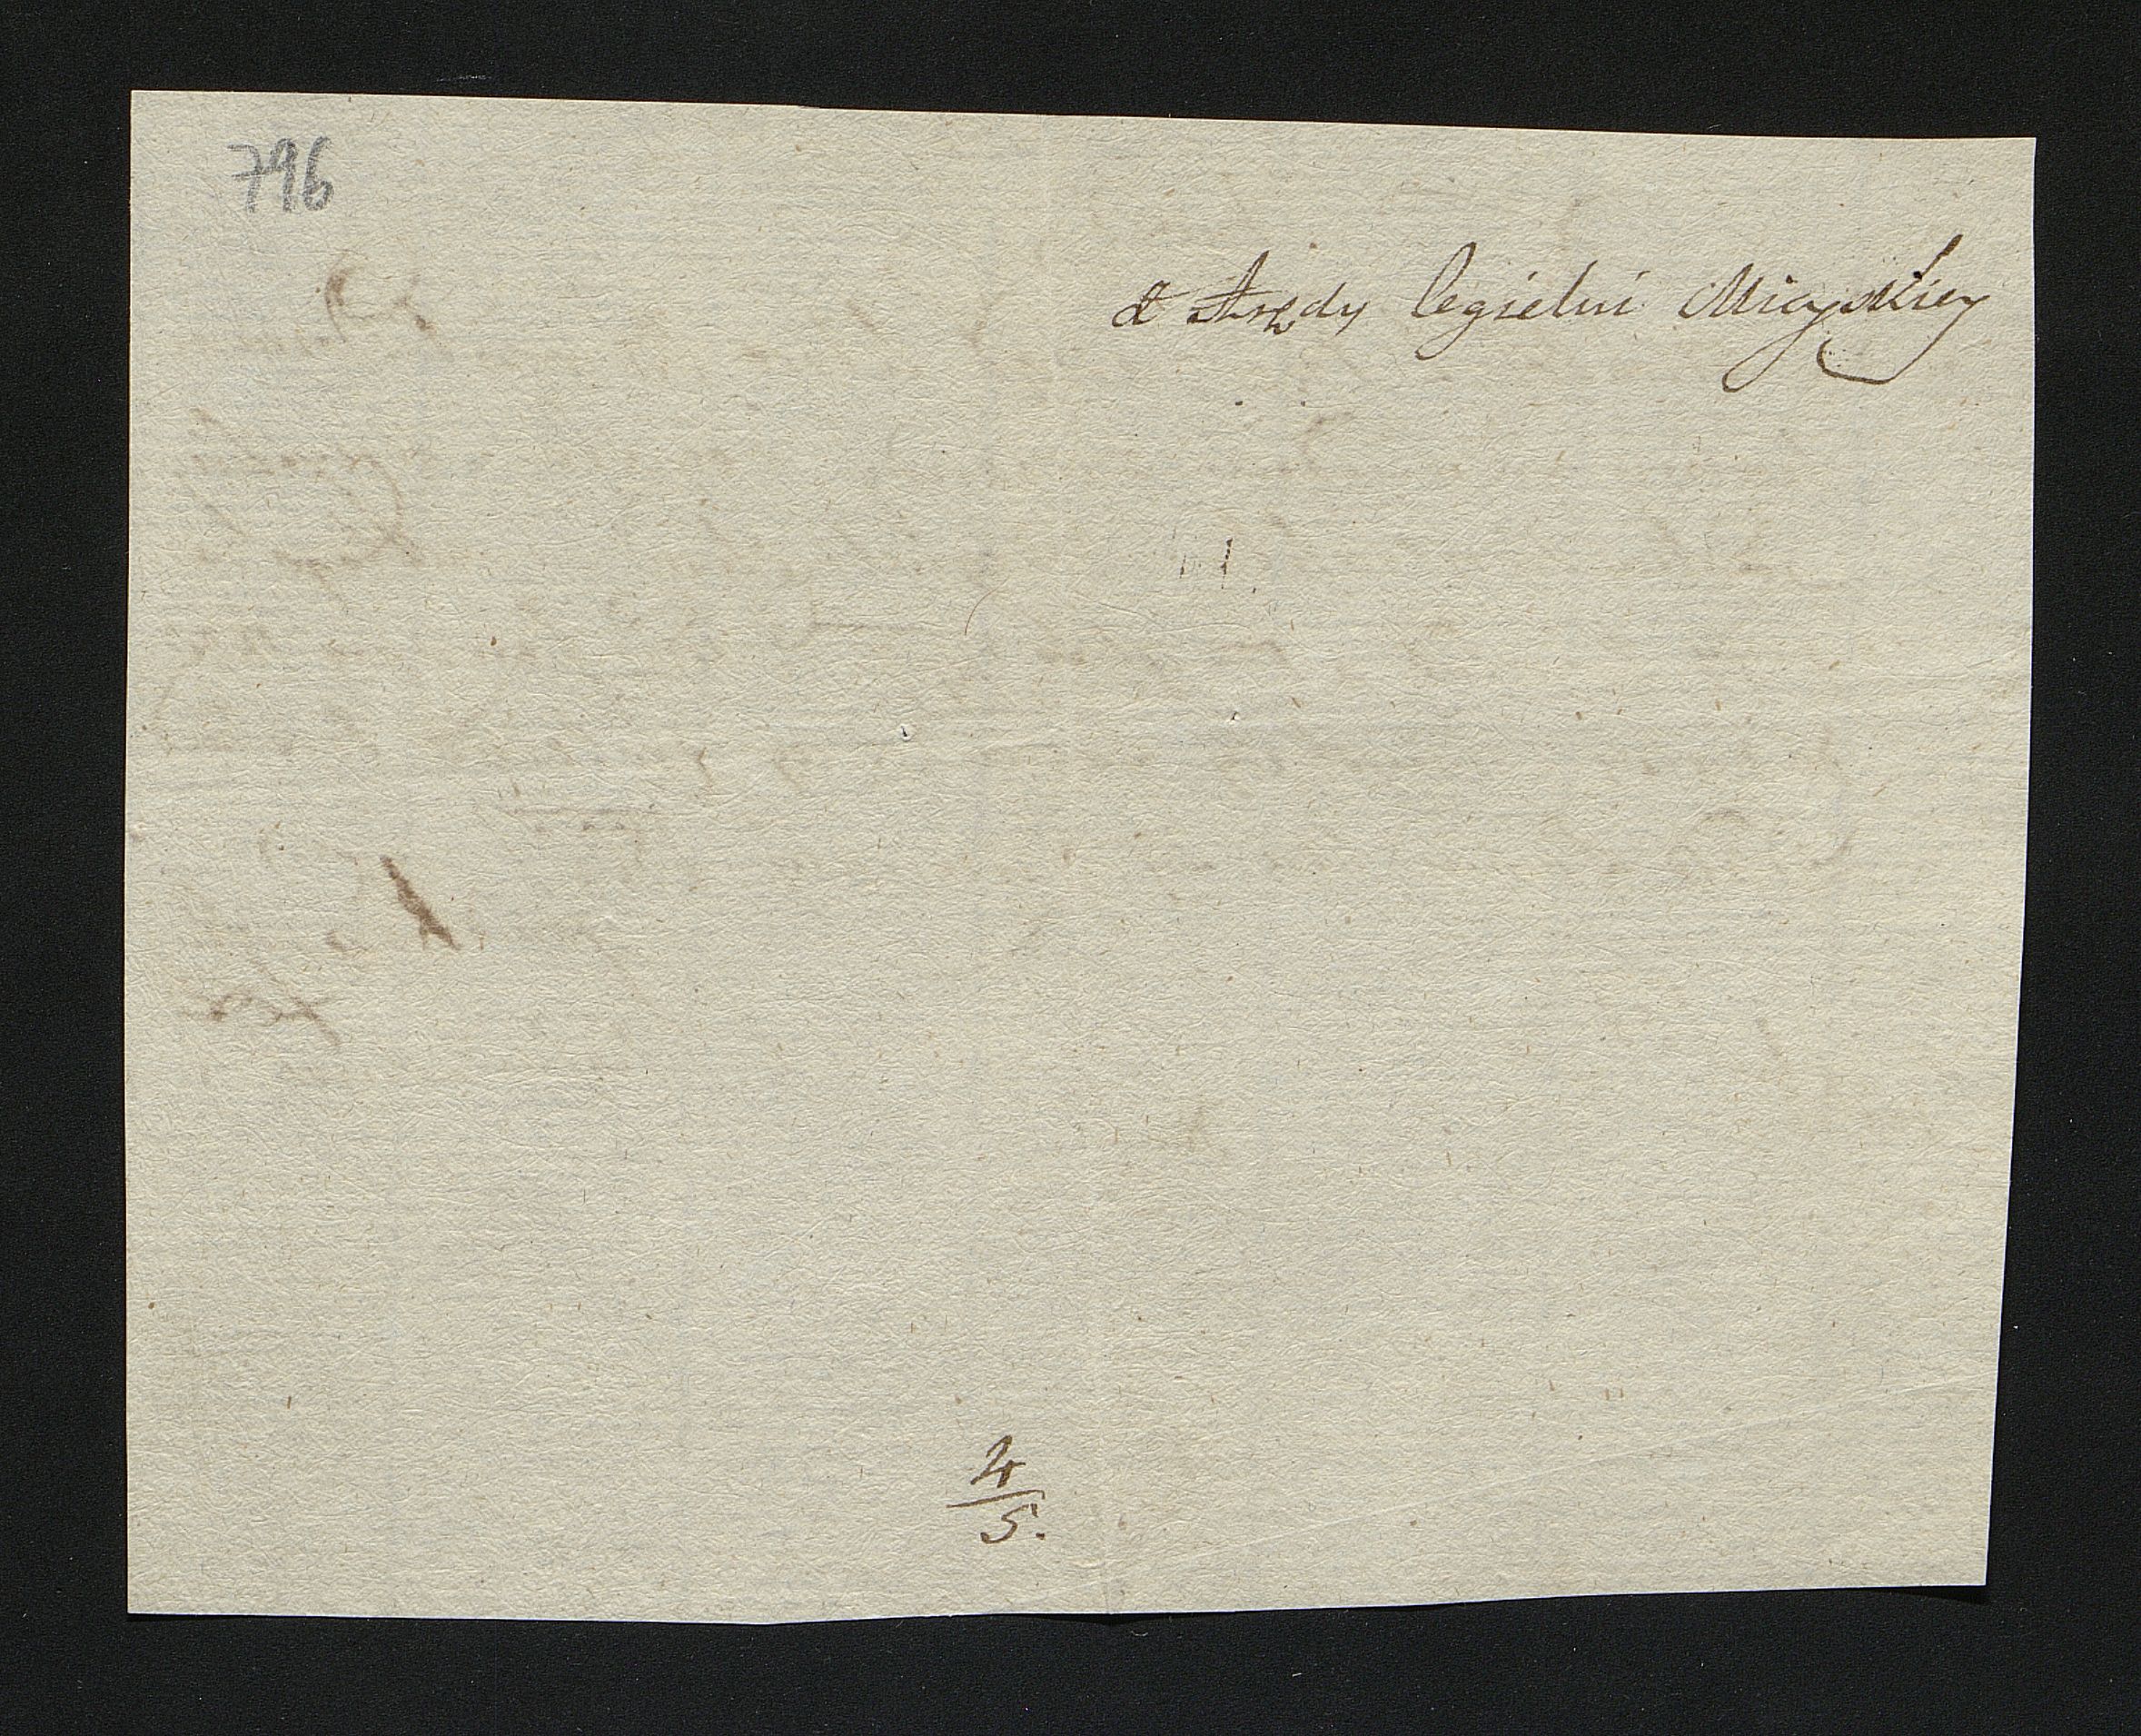 796
z Arędy Cegielni Mieyskiey
4
5.